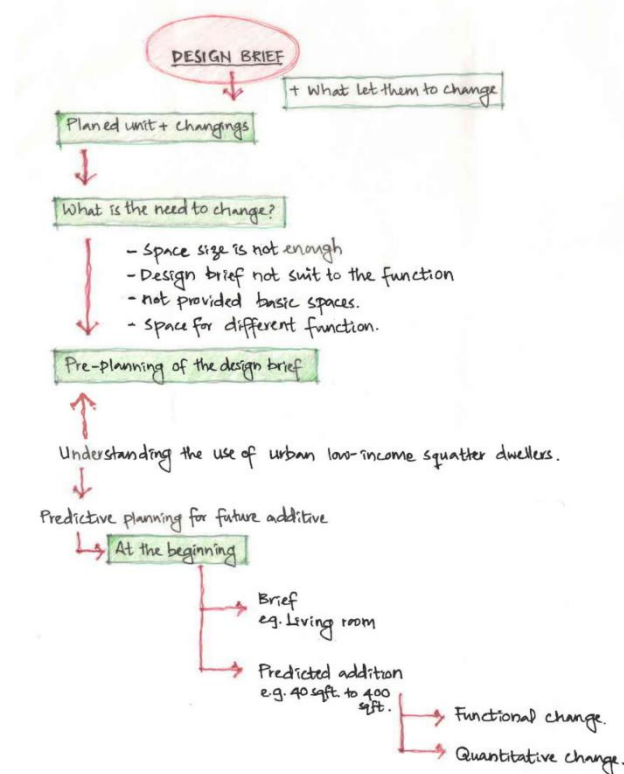 DESIGN BRIEF
+ What let them to change
Planed unit + changings
What is the need to change?
- Space size is not enough
- Design brief not suit to the function
- not provided basic spaces.
- Space for different function.
Pre-planning of the design brief
Understanding the use of urban low-income squatter dwellers.
Predictive planning for future additive
At the beginning
Brief
eg. Living room
Predicted addition
e.g. 40 sqft. to 400
sqft.
Functional change.
Quantitative change.